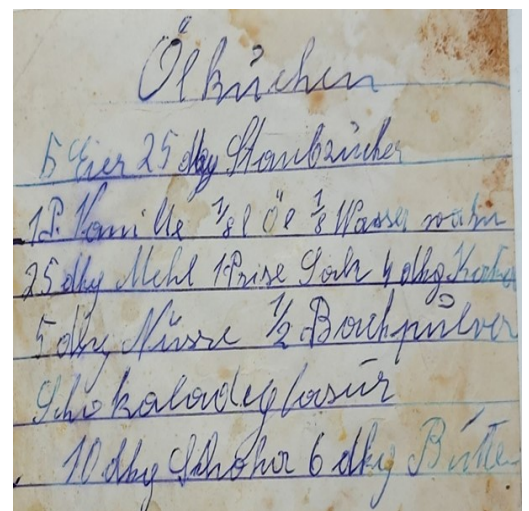 Ölkuchen
5 Eier 25 dkg Staubzucker
1 P. Vanille 1/8 l Öl 1/8 Wasser warm
25 dkg Mehl 1 Prise Salz 4 dkg Kakao
5 dkg Nüsse 1/2 Backpulver
Schokaladeglasur
10 dkg Schoko 6 dkg Butter